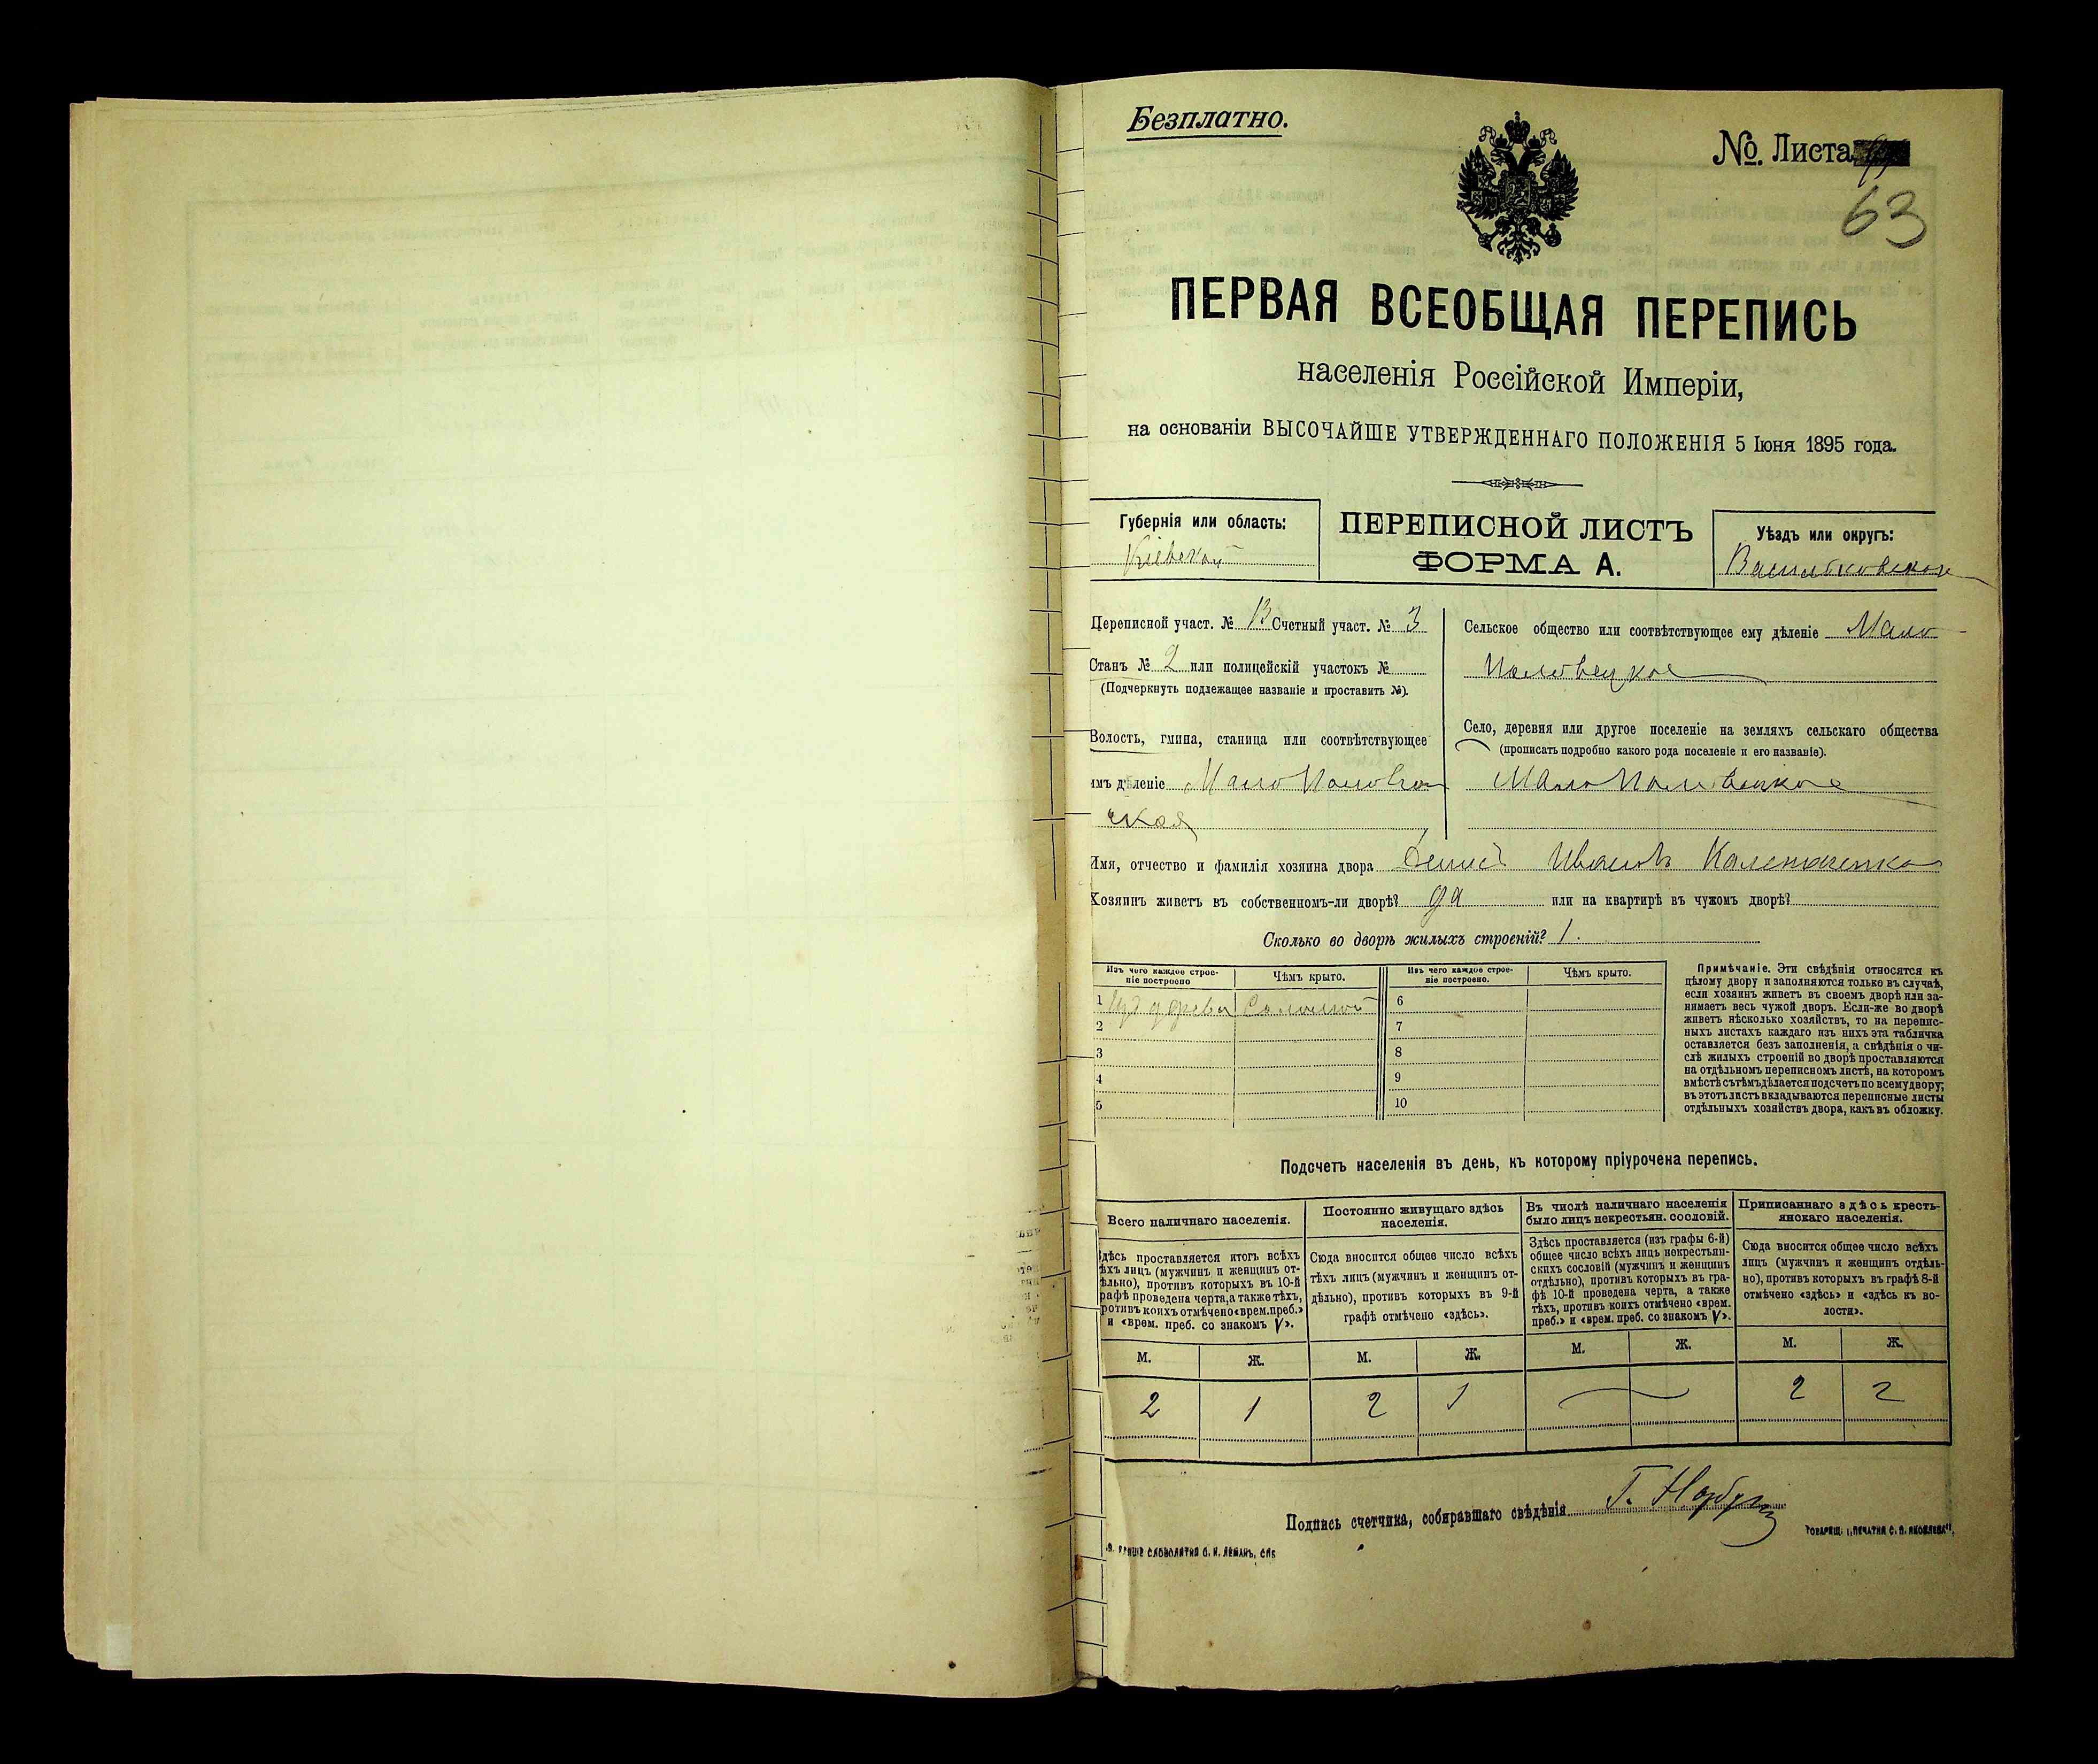 Безплатно.
№. Листа
63
ПЕРВАЯ ВСЕОБЩАЯ ПЕРЕПИСЬ
населенія Россійской Имперіи,
на основаніи ВЫСОЧАЙШЕ УТВЕРЖДЕННАГО ПОЛОЖЕНІЯ 5 Іюня 1895 года.
Губернія или область:
Кіевская
ПЕРЕПИСНОЙ ЛИСТЪ
ФОРМА А.
Уѣздъ или округъ:
Васильковскій
Переписной участ. № 13 Счетный участ. № 3
Станъ № 2 или полицейскій участокъ №
(Подчеркнуть подлежащее названіе и проставить №).
Волость, гмина, станица или соотвѣтствующее
имъ дѣленіе Мало Половец
кая
Сельское общество или соотвѣтствующее ему дѣленіе Мало
Половецкое
Село, деревня или другое поселеніе на земляхъ сельскаго общества
(прописать подробно какого рода поселеніе и его названіе).
Мало Половецкое
Имя, отчество и фамилія хозяина двора Денисъ Ивановъ
Хозяинъ живетъ въ собственномъ-ли дворѣ? да или на квартирѣ въ чужомъ дворѣ?
Сколько во дворѣ жилыхъ строеній? 1.
Изъ чего каждое строе-
ніе построено
Чѣмъ крыто.
Изъ чего каждое строе-
ніе построено.
Чѣмъ крыто.
1 Изъ дерева Соломой
2
3
4
5
6
7
8
9
10
Примѣчаніе. Эти свѣдѣнія относятся къ
цѣлому двору и заполняются только въ случаѣ,
если хозяинъ живетъ въ своемъ дворѣ или за-
нимаетъ весь чужой дворъ. Если-же во дворѣ
живетъ нѣсколько хозяйствъ, то на перепис-
ныхъ листахъ каждаго изъ нихъ эта табличка
оставляется безъ заполненія, а свѣдѣнія о чи-
слѣ жилыхъ строеній во дворѣ проставляются
на отдѣльномъ переписномъ листѣ, на которомъ
вмѣстѣ съ тѣмъ дѣлается подсчетъ по всему двору;
въ этотъ листъ вкладываются переписные листы
отдѣльныхъ хозяйствъ двора, какъ въ обложку.
Подсчетъ населенія въ день, къ которому пріурочена перепись.
Всего наличнаго населенія.
Здѣсь проставляется итогъ всѣхъ
тѣхъ лицъ (мужчинъ и женщинъ от-
дѣльно), противъ которыхъ въ 10-й
графѣ проведена черта, а также тѣхъ,
противъ коихъ отмѣчено «врем. преб.»
и «врем. преб. со знакомъ V».
Постоянно живущаго здѣсь
населенія.
Сюда вносится общее число всѣхъ
тѣхъ лицъ (мужчинъ и женщинъ от-
дѣльно), противъ которыхъ въ 9-й
графѣ отмѣчено «здѣсь».
Въ числѣ наличнаго населенія
было лицъ некрестьян. сословій.
Здѣсь проставляется (изъ графы 6-й)
общее число всѣхъ лицъ некрестьян-
скихъ сословій (мужчинъ и женщинъ
отдѣльно), противъ которыхъ въ гра-
фѣ 10-й проведена черта, а также
тѣхъ, противъ коихъ отмѣчено «врем.
преб.» и «врем. преб. со знакомъ V».
Приписаннаго здѣсь кресть-
янскаго населенія.
Сюда вносится общее число всѣхъ
лицъ (мужчинъ и женщинъ отдѣль-
но), противъ которыхъ въ графѣ 8-й
отмѣчено «здѣсь» и «здѣсь къ во-
лости».
М. Ж. М. Ж. М. Ж. М. Ж.
2 1 2 1 2 2
Подпись счетчика, собиравшаго свѣдѣнія